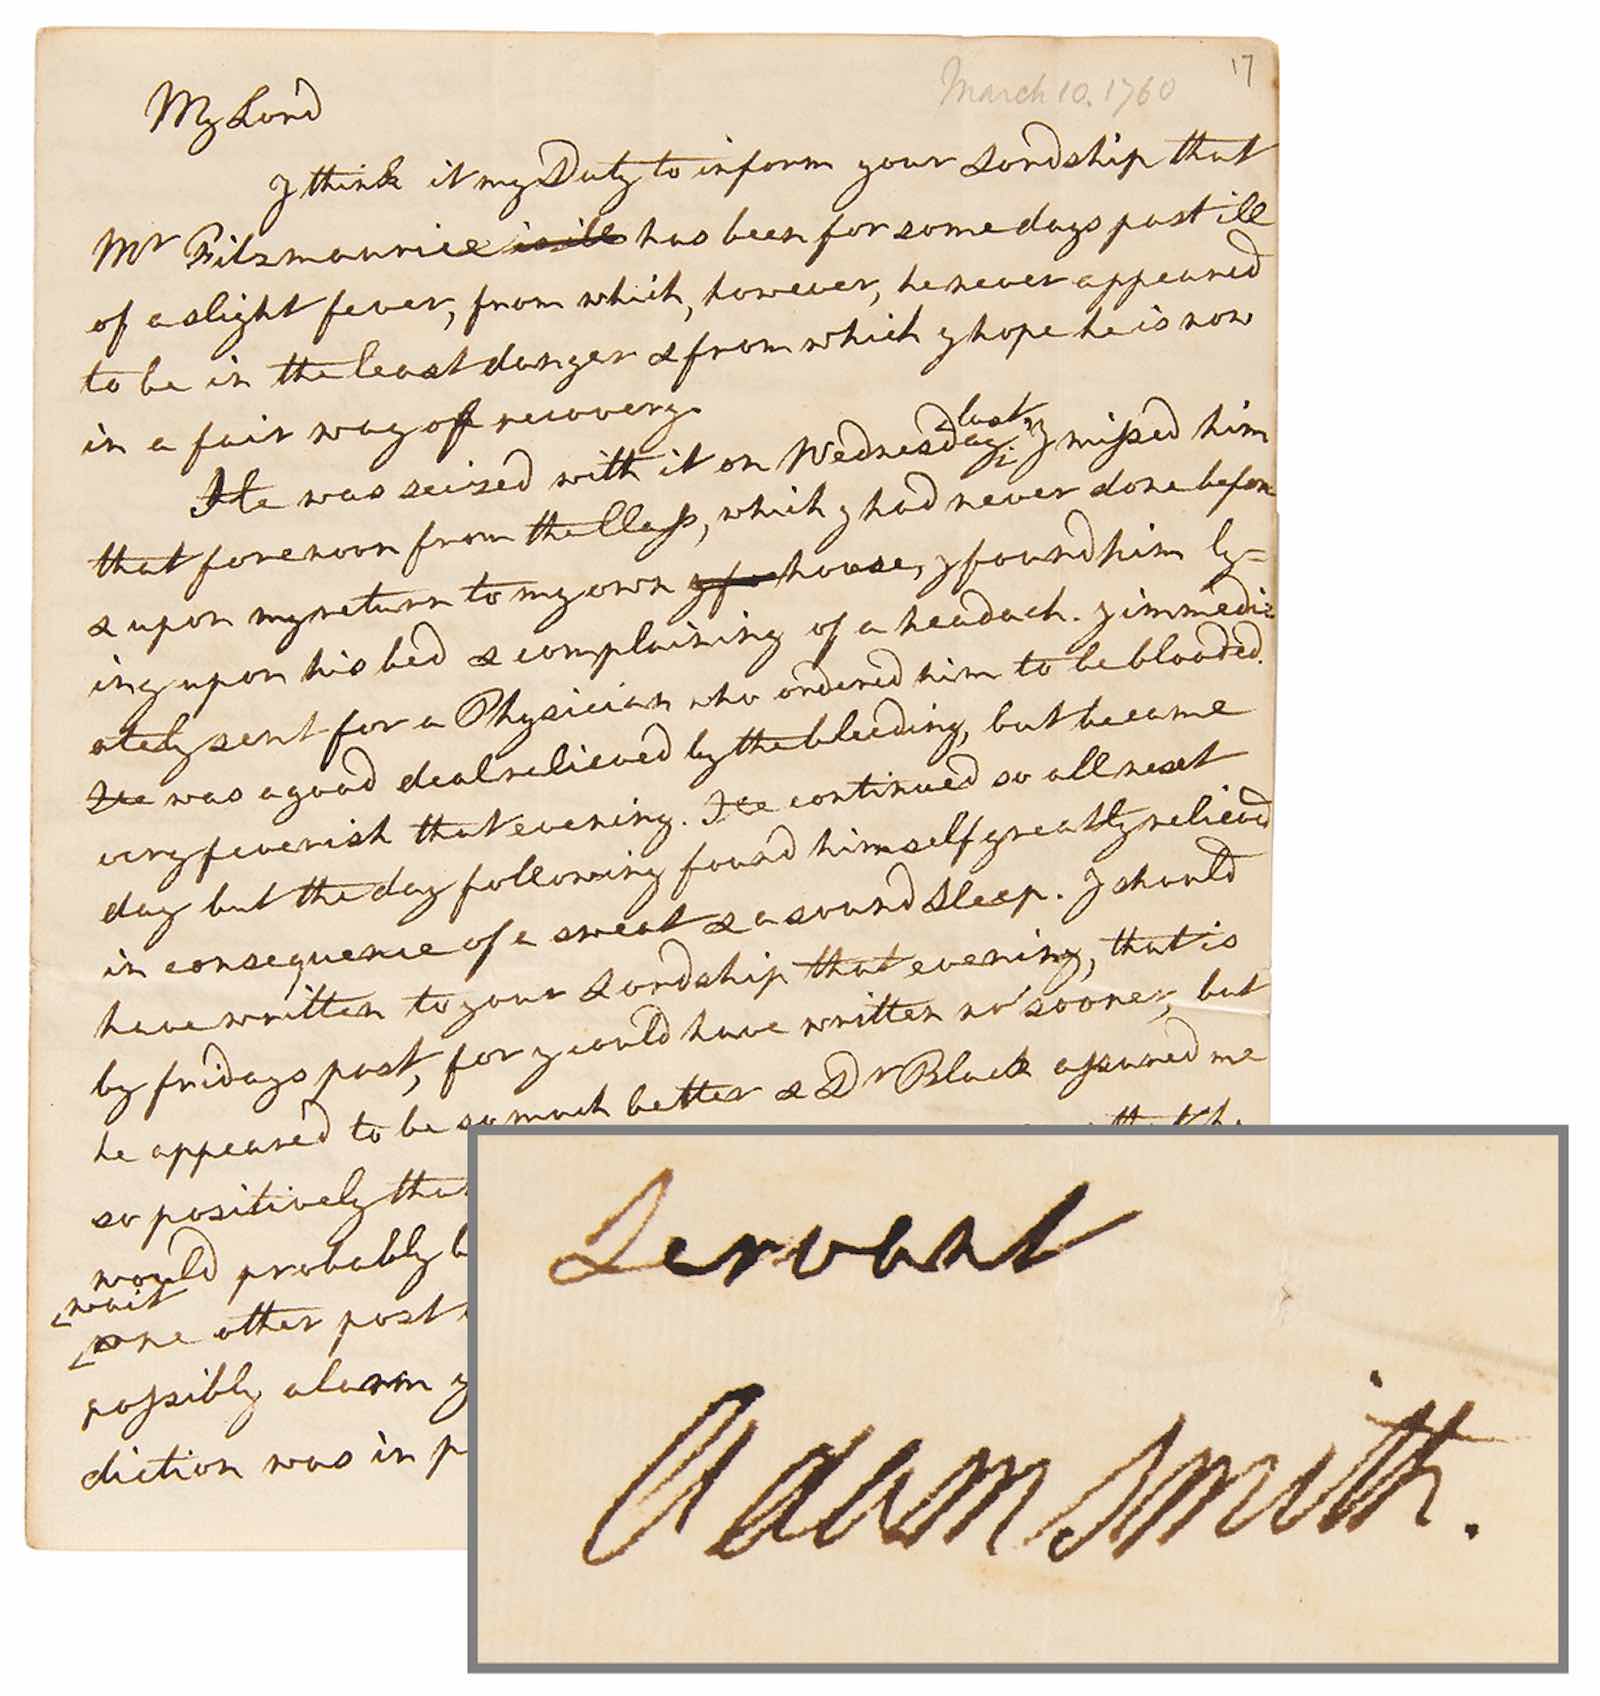 March 10. 1760
17
My Lord
I think it my Duty to inform your Lordship that
Mr Fitzmaurice is ill has been for some days past ill
of a slight fever, from which, however, he never appeared
to be in the least danger & from which I hope he is now
in a fair way of recovery.
He was seized with it on Wednesday last; I missed him
that forenoon from the Class, which I had never done before
& upon my return to my own house, I found him ly=
ing upon his bed & complaining of a headach. I immedi=
ately sent for a Physician who ordered him to be blooded.
He was a good deal relieved by the bleeding, but became
very feverish that evening. He continued so all next
day but the day following found himself greatly relieved
in consequence of a sweat & a sound sleep. I should
have written to your Lordship that evening, that is
by fridays post, for I could have written no sooner, but
he appeared to be so much better & Dr Black assured me
so positively that
that he
would probably
wait
one other post
possibly alarm y
diction was in p
Servant
Adam Smith.